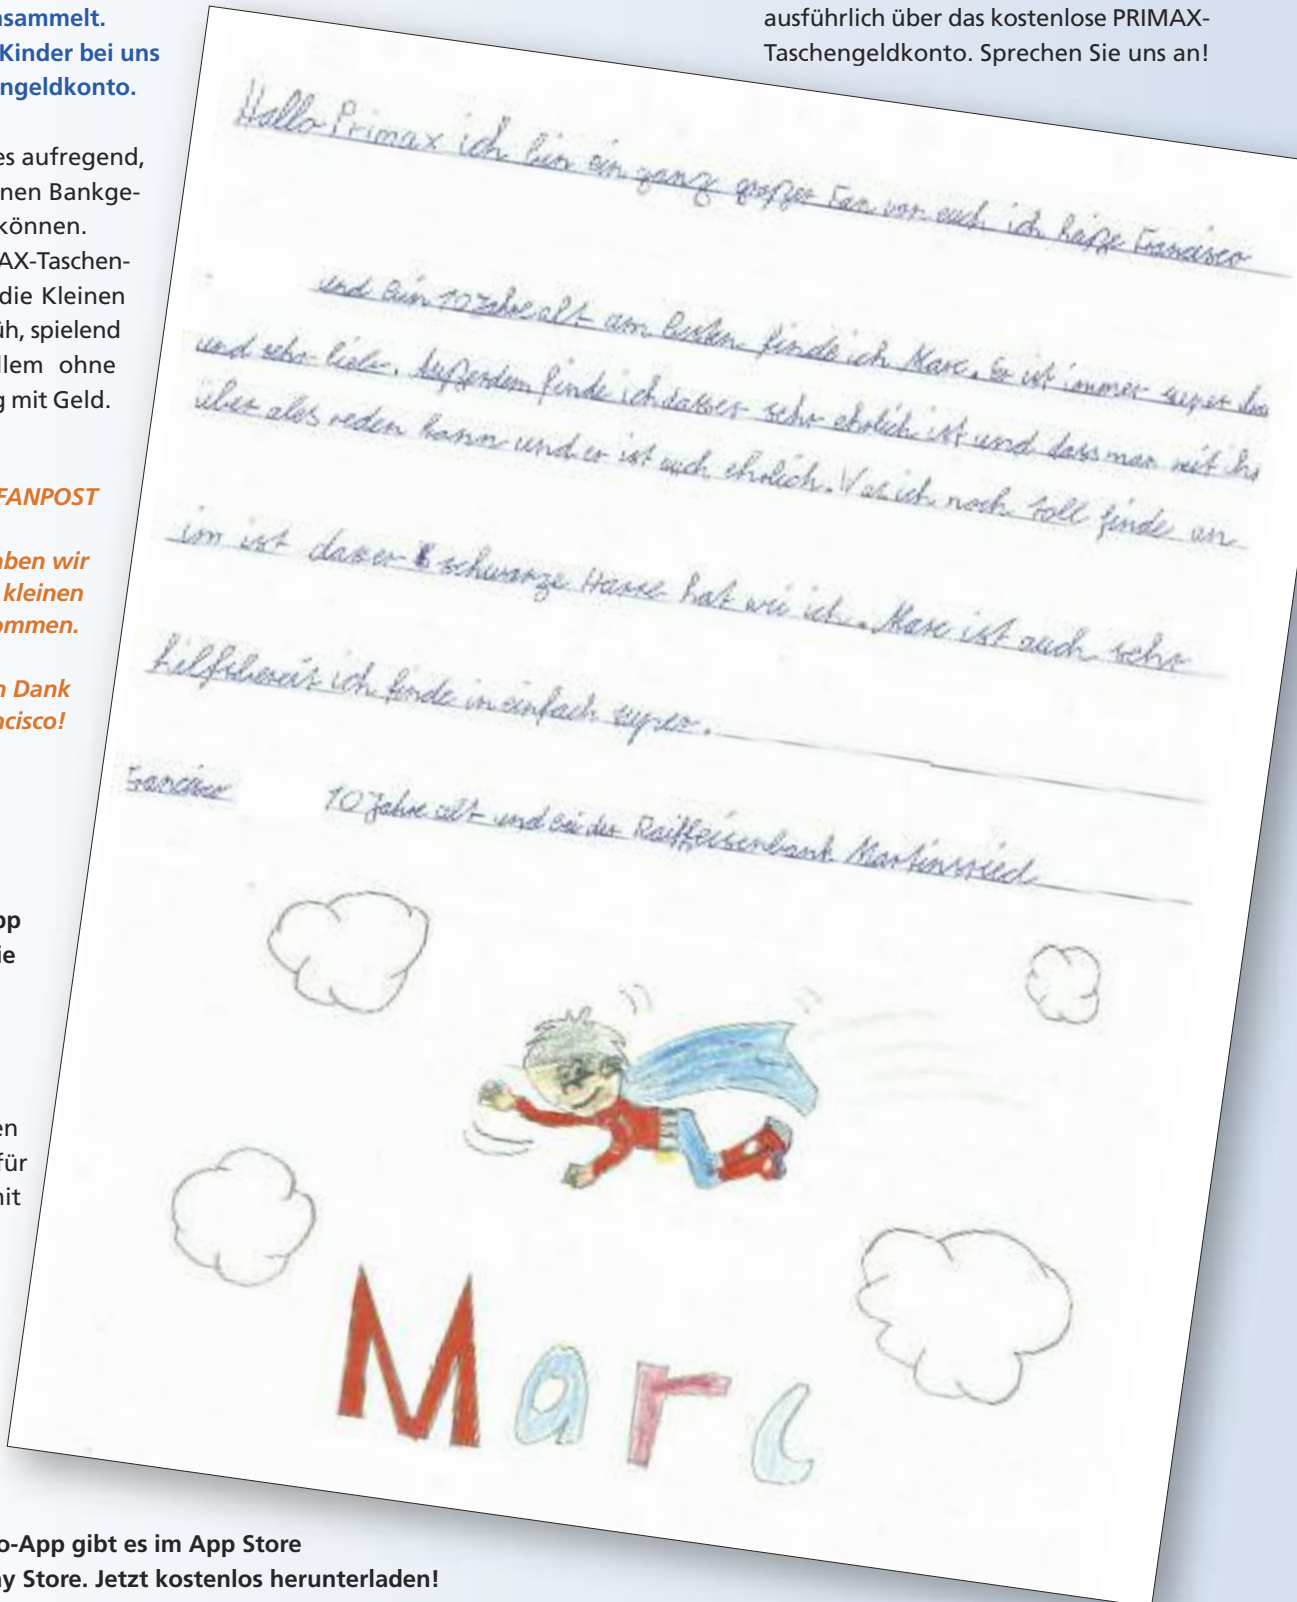 nsammelt.
Kinder bei uns
ngeldkonto.
es aufregend,
nen Bankge-
können.
AX-Taschen-
die Kleinen
üh, spielend
llem ohne
g mit Geld.
FANPOST
aben wir
kleinen
ommen.
n Dank
ncisco!
pp
ie
en
für
mit
ausführlich über das kostenlose PRIMAX-
Taschengeldkonto. Sprechen Sie uns an!
Hallo Primax ich bin ein ganz großer Fan von euch ich heiße Francisco
und bin 10 Jahre alt am besten finde ich Marc. Er ist immer super
und sehr lieb. Außerdem finde ich dasser sehr ehrlich ist und dass man mit
über ales reden kann und er ist auch ehrlich. Was ich noch toll finde an
im ist dasser schwarze Haare hat wie ich. Marc ist auch sehr
hilfsbereit ich finde in einfach super.
Francisco 10 Jahre alt und bei der Raiffeisenbank Martinsried
Marc
o-App gibt es im App Store
ay Store. Jetzt kostenlos herunterladen!